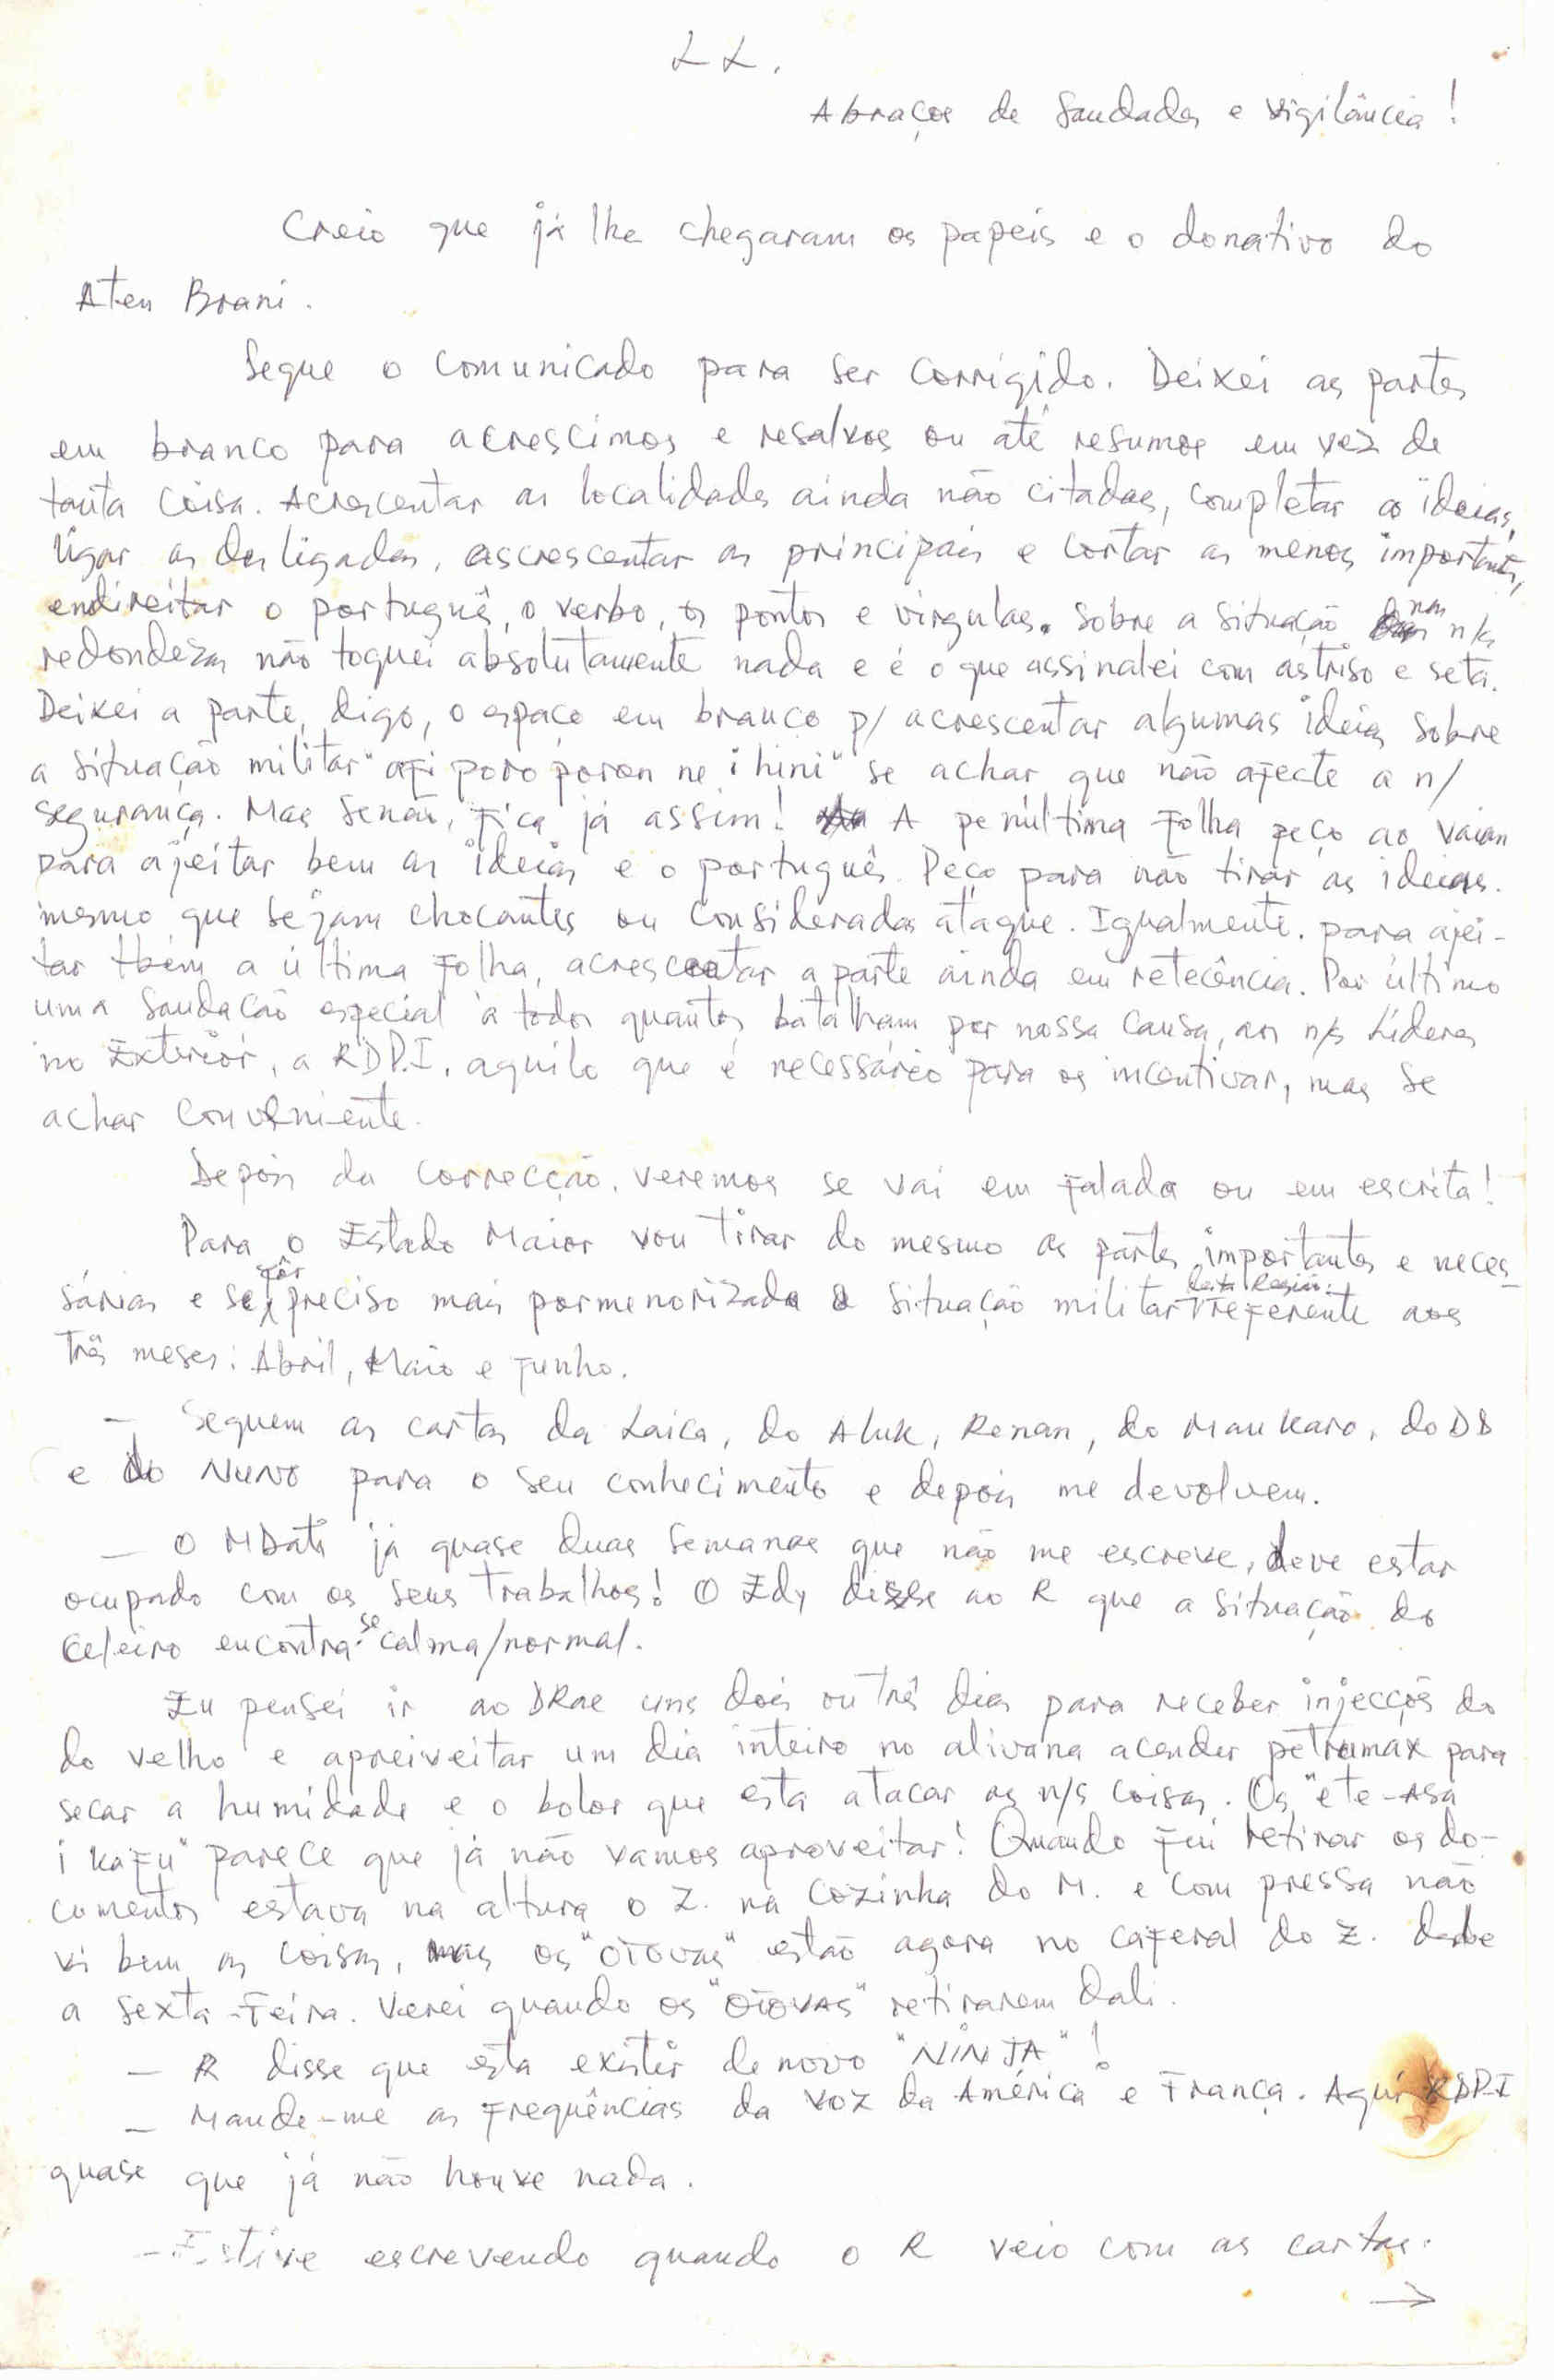 LL.
Abraços de Saudades e vigilância!
Creio que já lhe chegaram os papeis e o donativo do
Aten Brani.
Segue o comunicado para ser corrigido. Deixei as partes
em branco para acrescimos e resalvos ou até resumos em vez de
tanta coisa. Acrescentar as localidades ainda não citadas, completar as ideias,
ligar as desligadas, ascrescentar as principais e cortar as menos importantes,
endireitar o português, o verbo, os pontos e virgulas. Sobre a situação nas n/s
redondezas não toquei absolutamente nada e é o que assinalei com astriso e seta.
Deixei a parte, digo, o espaço em branco p/ acrescentar algumas ideias sobre
a situação militar "afi poro poron ne i hini" se achar que não afecte a n/
segurança. Mas senão, fica já assim! A penúltima folha peço ao Vaian
para ajeitar bem as ideias e o português. Peço para não tirar as ideias.
mesmo que sejam chocantes ou consideradas ataque. Igualmente, para ajei-
tar tbém a última folha, acrescentar a parte ainda em retecência. Por último
uma saudação especial à todos quantos batalham por nossa causa, aos n/s Líderes
no Exterior, a RDP.I, aquilo que é necessário para os incentivar, mas se
achar conveniente.
Depois da correcção, veremos se vai em falada ou em escrita!
Para o Estado Maior vou tirar do mesmo as partes importantes e neces-
sárias e se fôr preciso mais pormenorizada a situação militar desta Região referente aos
três meses: Abril, Maio e Junho.
- Seguem as cartas da Laica, do Aluk, Renan, do Maukaro, do DD
e do NUNO para o seu conhecimento e depois me devolvem.
- O MDati já quase duas semanas que não me escreve, deve estar
ocupado com os seus trabalhos! O Edy disse ao R que a situação do
Celeiro encontra-se calma/normal.
Eu pensei ir ao DRae uns dois ou três dias para receber injecções do
do velho e apreiveitar um dia inteiro no alivana acender petromax para
secar a humidade e o bolor que esta atacar as n/s coisas. Os "ete-asa
i kafu" parece que já não vamos aproveitar! Quando fui retirar os do-
cumentos estava na altura o Z. na cozinha do M. e com pressa não
vi bem as coisas, mas os "OTOVAS" estão agora no caferal do Z. desde
a Sexta-Feira. Verei quando os "OTOVAS" retirarem dali.
- R disse que esta existir de novo "NINJA"!
- Mande-me as frequências da Voz da América e França. Aqui RDP-I
quase que já não houve nada.
- Estive escrevendo quando o R veio com as cartas.
→